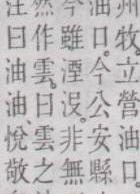 州牧。立營油口
油口。今公安縣
今雖湮沒。非無
然作雲。曰雲之
注曰油油、悅敬